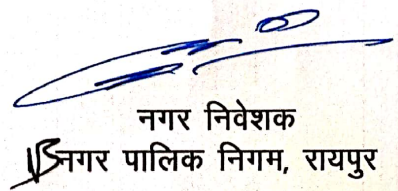 नगर निवेशक
नगर पालिक निगम, रायपुर